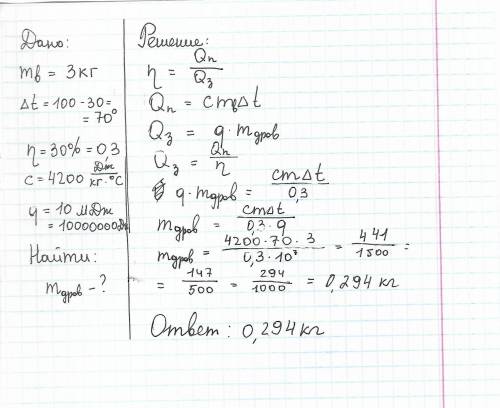 Дано:
mв = 3 кг
Δt = 100 - 30 =
= 70°
η = 30% = 0,3
c = 4200 Дж/кг·°C
q = 10 мДж
= 10000000Дж
Найти:
mдров - ?
Решение:
η = Qп/Qз
Qп = cmвΔt
Qз = q·mдров
Qз = Qп/η
q·mдров = cmΔt/0,3
mдров = cmΔt/0,3·q
mдров = 4200·70·3/0,3·10⁷ = 441/1500 =
= 147/500 = 294/1000 = 0,294 кг
Ответ: 0,294 кг